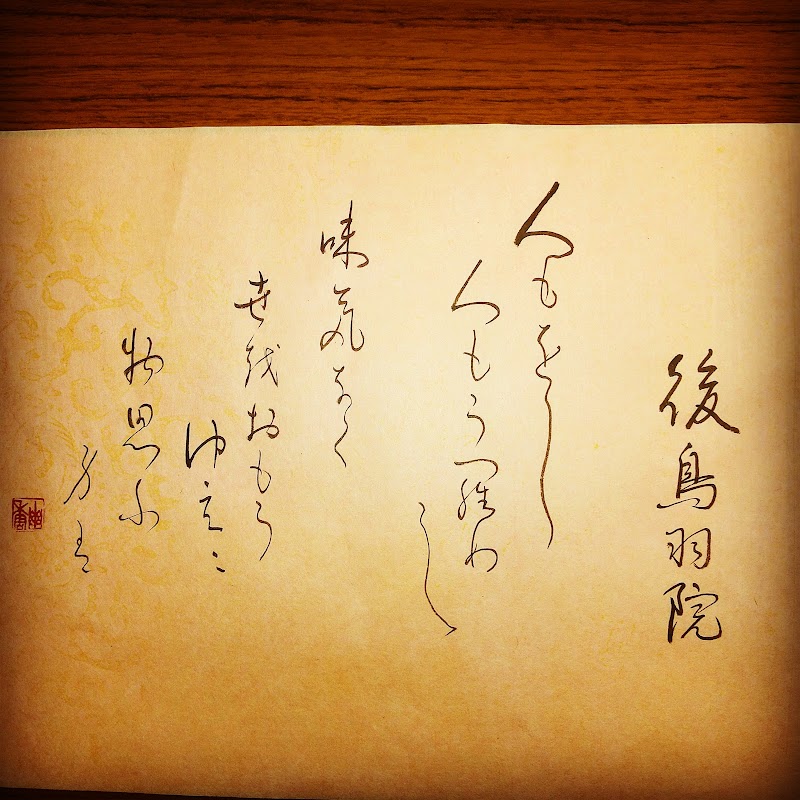 後鳥羽院
人もをし
人もう
し
味気なく
世越おもう
ゆゑに
物思ふ
身は